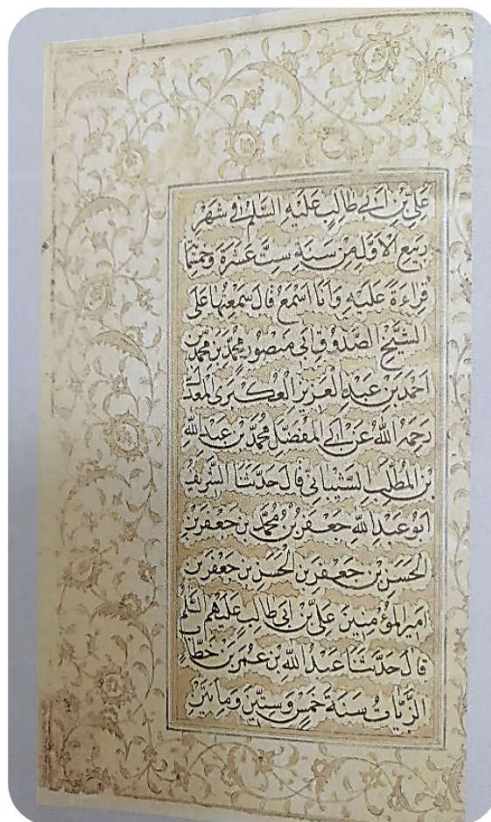 عَلِيِّ بْنِ اَبي طالِبٍ عَلَيْهِ السَّلٰمُ في شَهْرِ
رَبيعِ الاَوَّلِ مِنْ سَنَةِ سِتَّ عَشَرَةَ وَخَمْسَمِا
قِراءَةً عَلَيْهِ وَاَنَا اَسْمَعُ قالَ سَمِعْتُها عَلَى
الشَّيْخِ الصَّدُوقِ اَبي مَنْصُورٍ مُحَمَّدِ بْنِ مُحَمَّدِ بْنِ
اَحْمَدَ بْنِ عَبْدِ الْعَزيزِ الْعُكْبَرِىِّ الْمُعَدَّ
رَحِمَهُ اللهُ عَنْ اَبِي الْمُفَضَّلِ مُحَمَّدِ بْنِ عَبْدِ اللهِ
بْنِ الْمُطَّلِبِ الشَّيْبانيِّ قالَ حَدَّثَنَا الشَّريفُ
اَبُو عَبْدِ اللهِ جَعْفَرُ بْنُ مُحَمَّدِ بْنِ جَعْفَرِ بْنِ
الْحَسَنِ بْنِ جَعْفَرِ بْنِ الْحَسَنِ بْنِ جَعْفَرِ بْنِ
اَميرِ الْمُؤْمِنينَ عَلِيِّ بْنِ اَبي طالِبٍ عَلَيْهِمُ السَّلٰمُ
قالَ حَدَّثَنا عَبْدُ اللهِ بْنُ عُمَرَ بْنِ خَطّابٍ
الزَّيّاتُ سَنَةَ خَمْسٍ وَسِتّينَ وَمِاَتَيْنِ